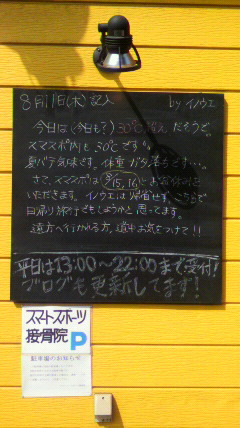 8月11日(木)記入 by イノウエ
今日は(今日も?)30℃超えだそうで
スマスポ内も30℃です。
夏バテ気味です。体重ガタ落ちです…。
さて、スマスポは8/15,16とお盆休みを
いただきます。イノウエは帰省せず、
日帰り旅行でもしようかと思ってます。
遠方へ行かれる方、道中お気をつけて!!
平日は13:00〜22:00まで受付!
ブログも更新してます!
スマートスポーツ
接骨院 P
駐車場のお知らせ